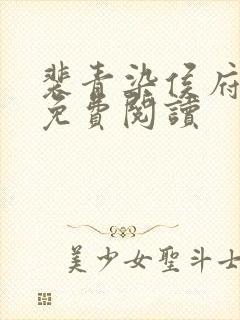 裴青染侯府
免費閱讀
美少女聖斗士